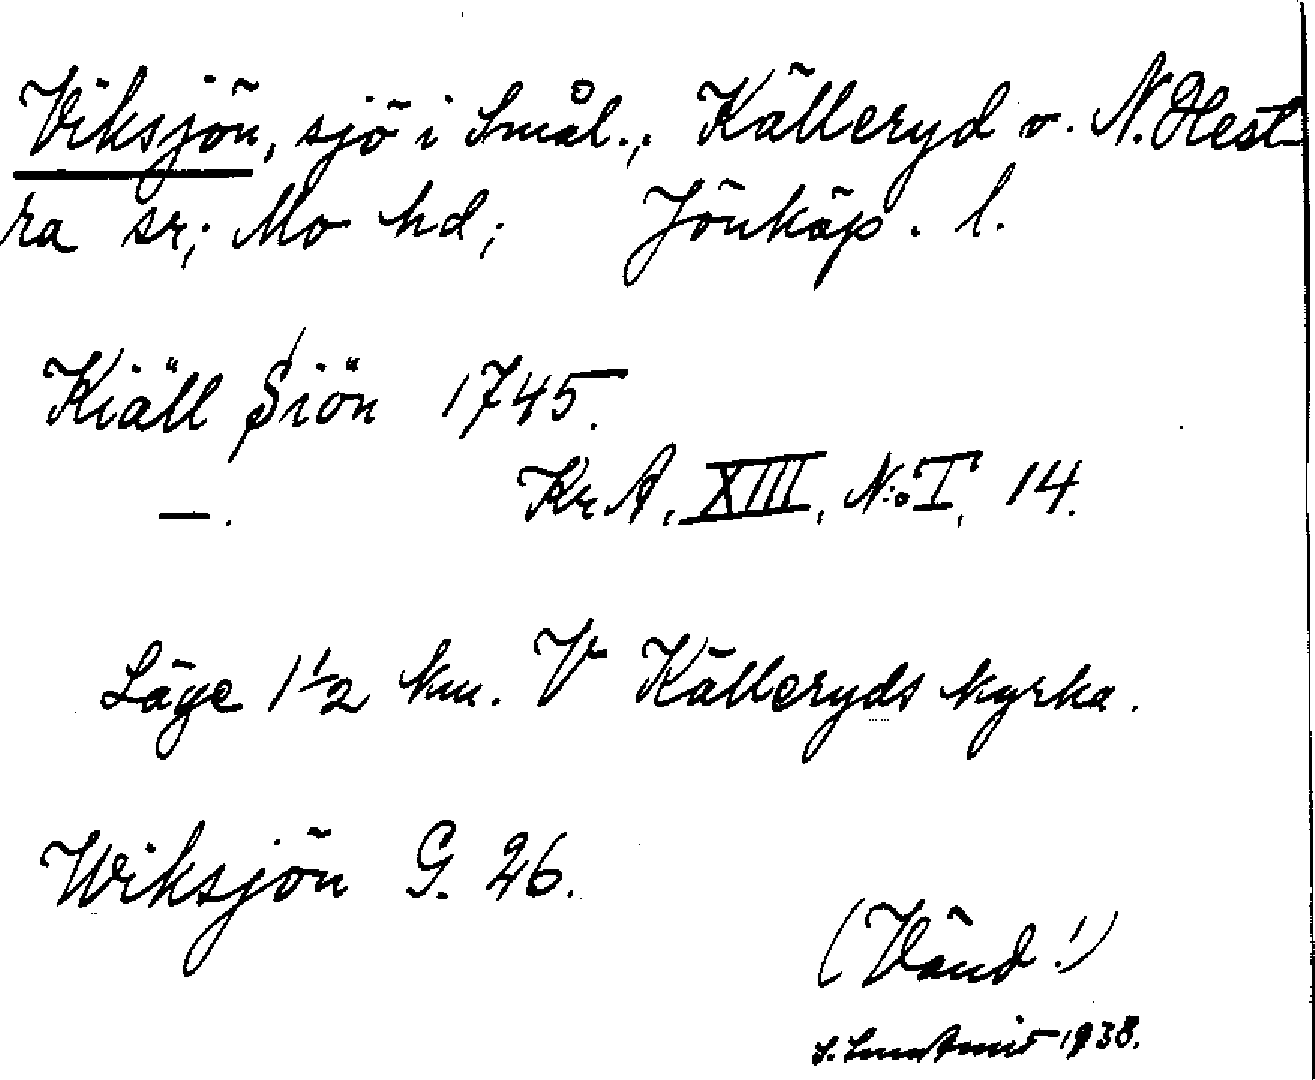 Viksjön, sjö i Smål., Källeryd o. N. Hest-
ra sr; Mo hd; Jönköp. l.
Kiäll Siön 1745.
—. Kr. A, XIII, N:o I, 14.
Läge 1 1/2 km. V Källeryds kyrka.
Wiksjön G. 26.
(Vänd!)
1938.